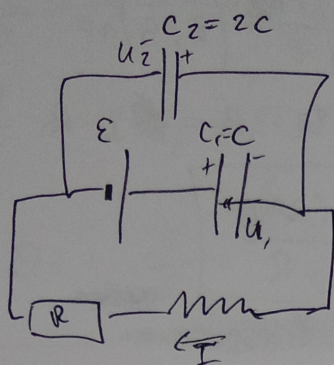 C₂ = 2C
U₂ - +
ε
C₁=C
+ -
U₁
R
I